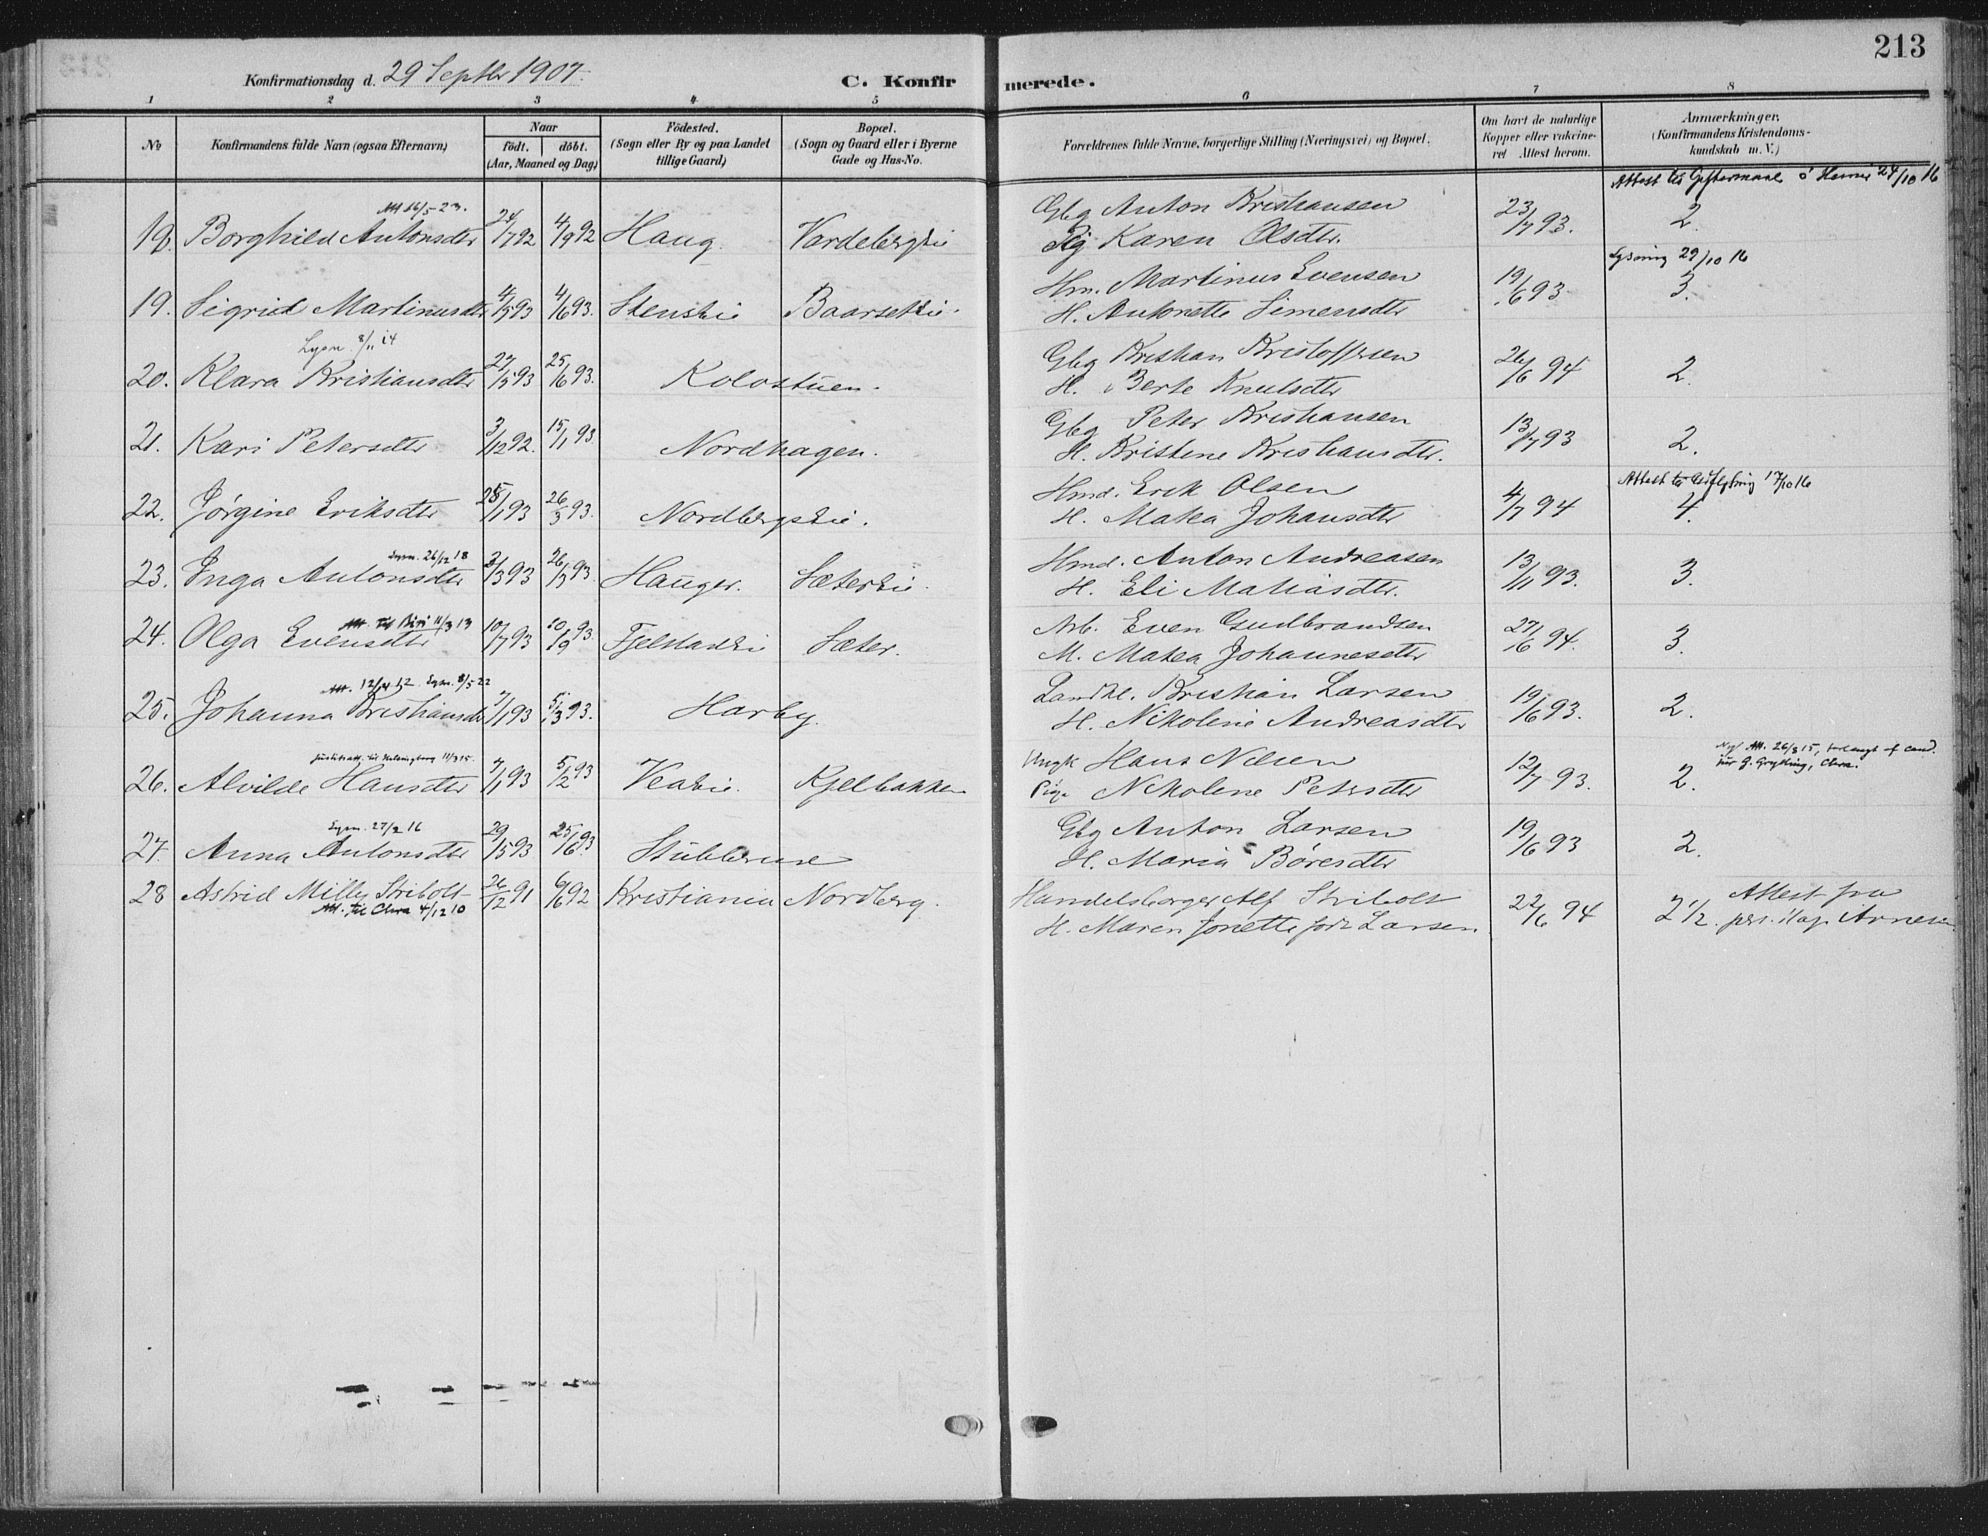 213
Konfirmationsdag d. 29 Septbr 1907.
C. Konfirmerede.
1 2 3 4 5 6 7 8
No
Konfirmandens fulde Navn (ogsaa Efternavn)
Naar
födt. döbt.
(Aar, Maaned og Dag)
Födested.
(Sogn eller By og paa Landet
tillige Gaard)
Bopæl.
(Sogn og Gaard eller i Byerne
Gade og Hus-No.
Forældrenes fulde Navne, borgerlige Stilling (Næringsvei) og Bopæl.
Om havt de naturlige
Kopper eller vakcine-
ret Attest herom.
Anmærkninger,
(Konfirmandens Kristendoms-
kundskab m. V.)
Att 16/5 23.
Attest til Giftermaal 24/10 16
18. Borghild Antonsdtr 24/7 92 4/9 92 Haug. Vardeberg Gbg Anton Kristiansen 23/7 93. 2.
Pig Karen Olsdtr.
Lysning 29/10 16
19. Sigrid Martinusdtr 4/5 93 4/6 93. Hm. Martinus Evensen 19/6 93 3.
H. Antonette Simensdtr
Lysn. 8/11 14
20. Klara Kristiansdtr 27/5 93 25/6 93. Kolostuen. Gbg Kristian Kristoffersen 26/6 94 2.
H. Berte Knutsdtr
21. Kari Petersdtr 3/12 92. 15/1 93 Nordhagen. Gbg Peter Kristiansen 13/7 93 2.
H. Kristine Kristiansdtr.
Attest til 17/10 16
22. Jørgine Eriksdtr 25/1 93 26/3 93. Hmd. Erik Olsen 4/7 94 4.
H. Matea Johansdtr
Lysn. 26/12 18
23. Inga Antonsdtr 2/3 93 26/3 93. Hauger. Hmd. Anton Andreasen 13/11 93. 3.
H. Eli Matiasdtr.
Att. til Biri 11/3 13
24. Olga Evensdtr 10/7 93 10/9 93. Sæter. Arb. Even Gudbrandsen 27/6 94. 3.
M. Matea Johannesdtr
Att. 12/4 12 Lysn. 8/5 22
25. Johanna Kristiansdtr 7/1 93 5/3 93. Harby. Landhl. Kristian Larsen 19/6 93. 2.
H. Nikoline Andreasdtr
11/3 15. Att. 26/3 15,
26. Alvilde Hansdtr 7/1 93 5/2 93 Kjelbakken Ungk Hans Nilsen 12/7 93. 2.
Pige Nikoline Petersdtr
Lysn. 27/2 16
27. Anna Antonsdtr 29/5 93 25/6 93. Gbg Anton Larsen 19/6 93 2.
H. Maria Børesdtr
28 Astrid Milly Stribolt 26/12 91 6/6 92 Kristiania Nordberg. Handelsborger Alf Stribolt 22/6 94 2 1/2. Attest fra
Att. til 4/12 10 H. Maren Jonette født Larsen pers. Kap. Arnesen